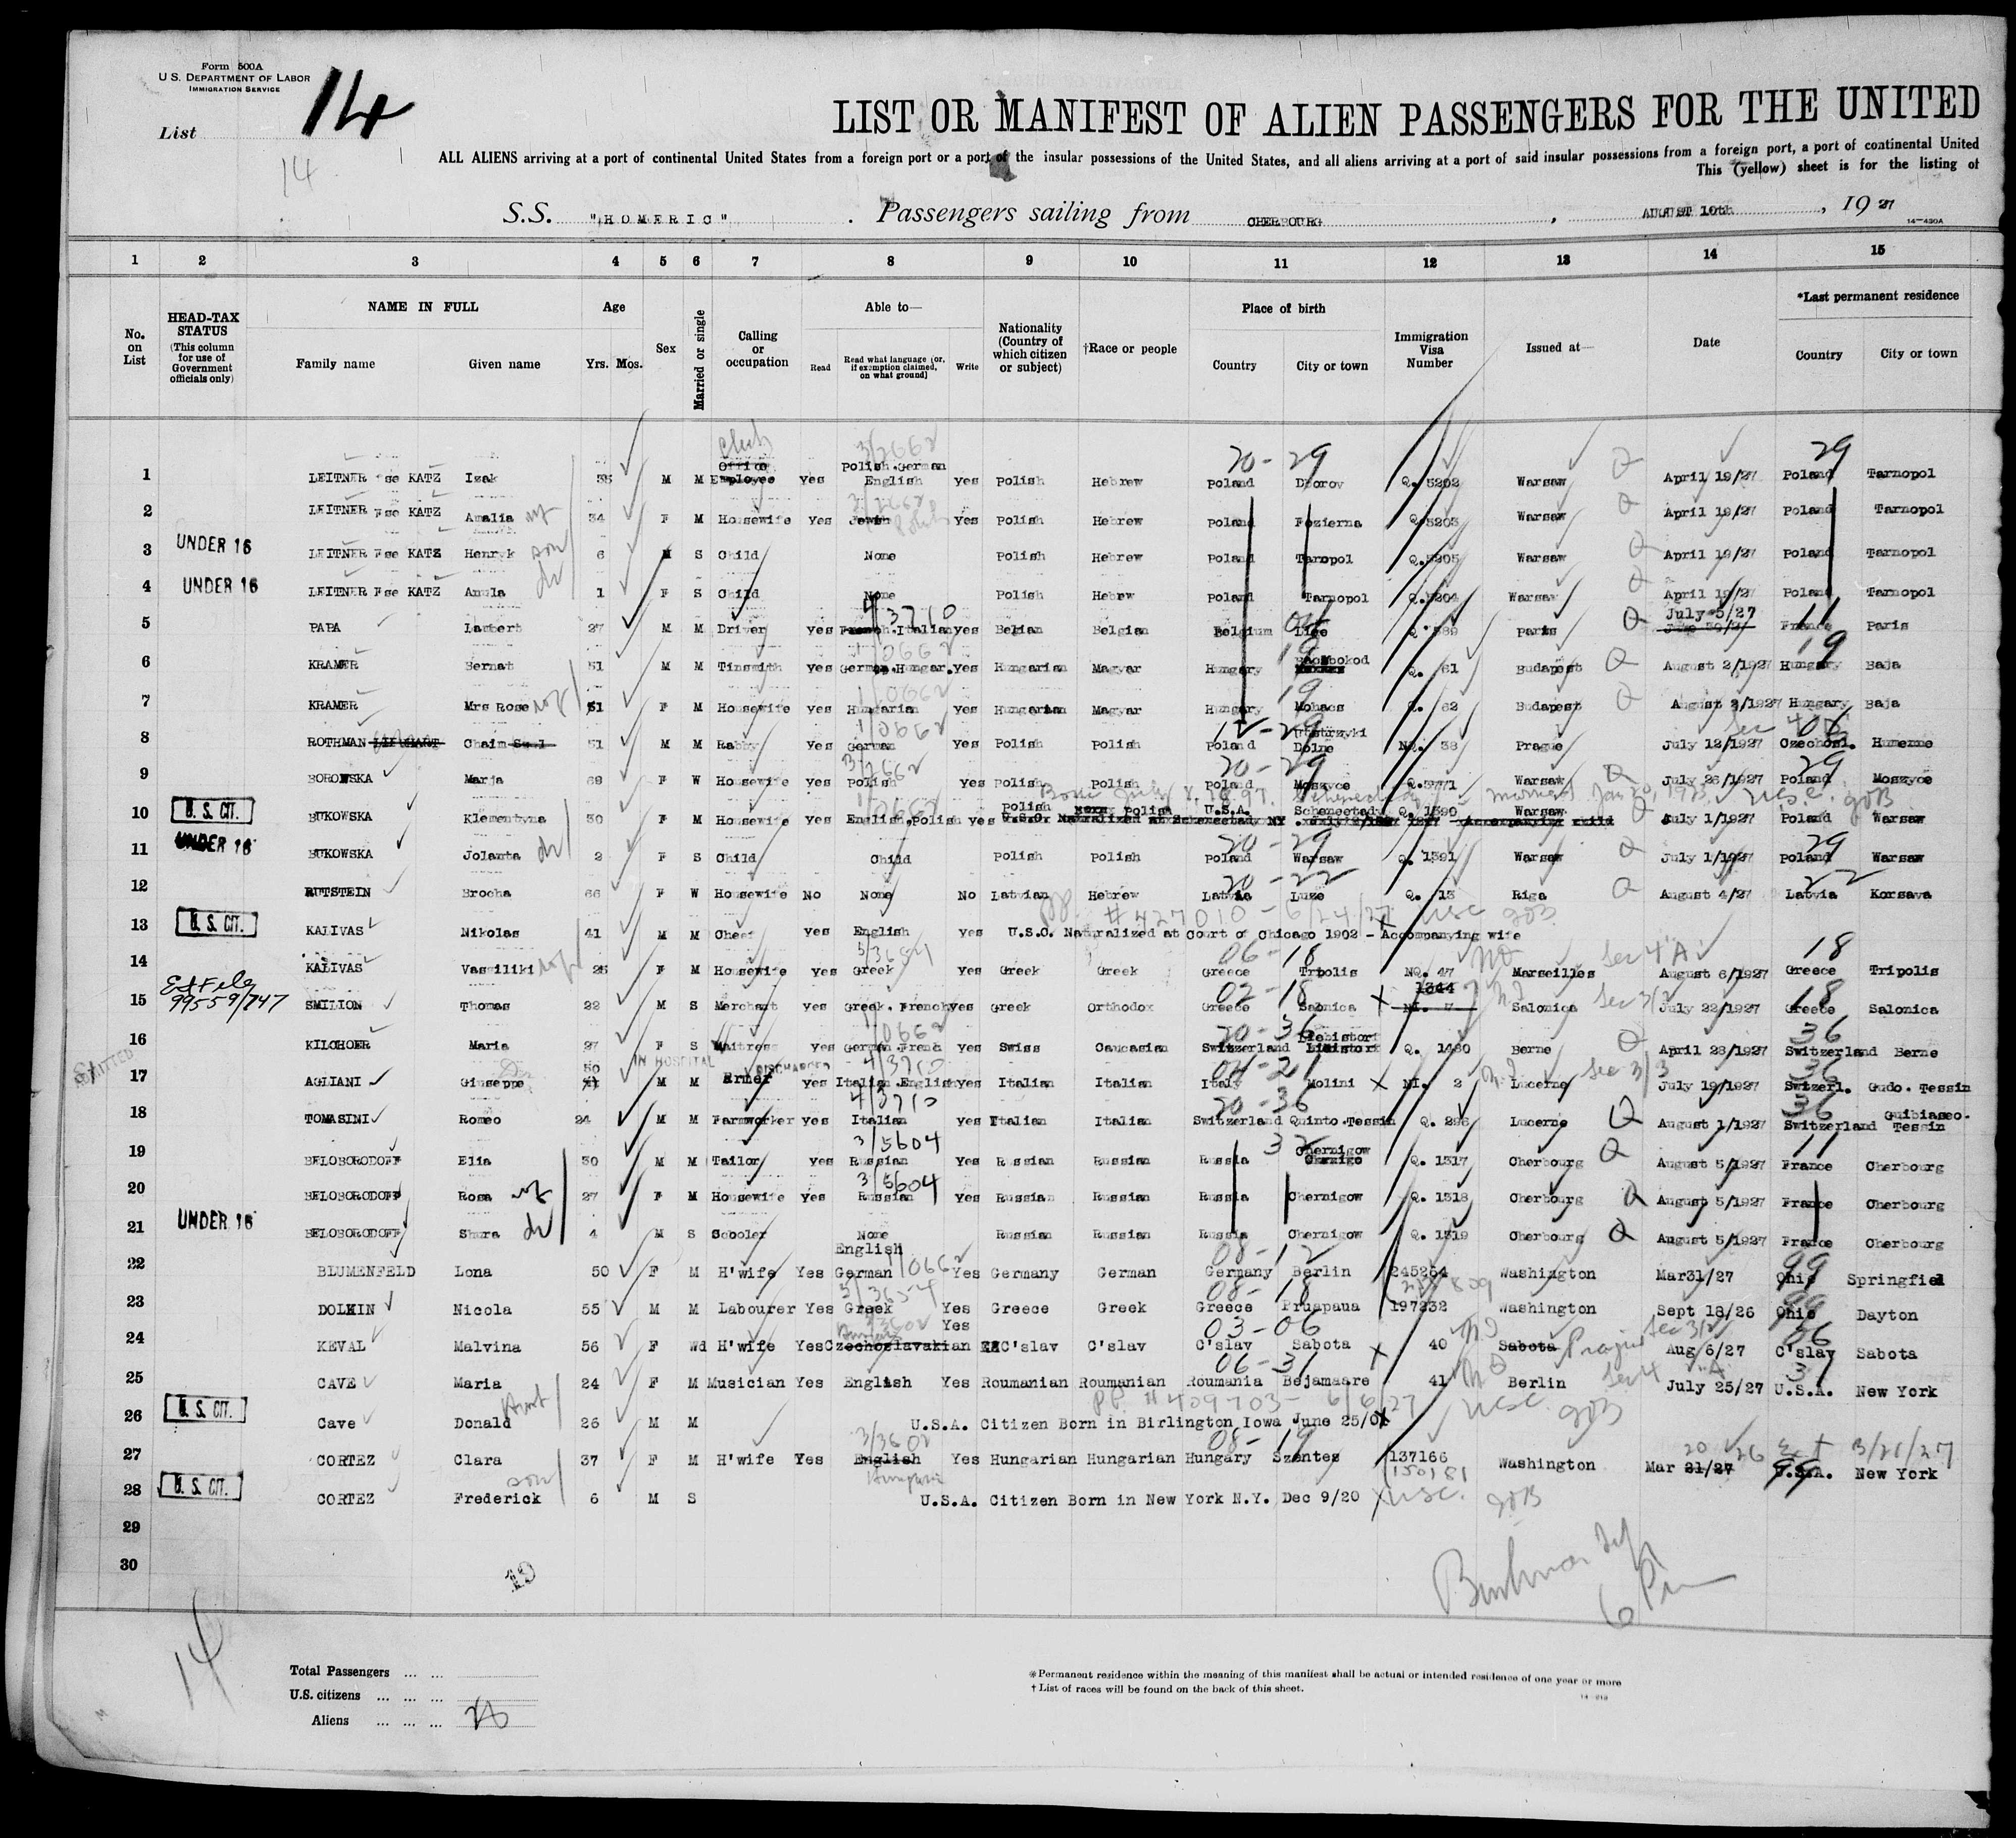 Form 500A
U.S. DEPARTMENT OF LABOR
IMMIGRATION SERVICE
List 14
14
LIST OR MANIFEST OF ALIEN PASSENGERS FOR THE UNITED
ALL ALIENS arriving at a port of continental United States from a foreign port or a port of the insular possessions of the United States, and all aliens arriving at a port of said insular possessions from a foreign port, a port of continental United
This (yellow) sheet is for the listing of
S.S. "HOMERIC" . Passengers sailing from CHERBOURG , AUGUST 10th , 19 27
14—430A
1 2 3 4 5 6 7 8 9 10 11 12 13 14 15
No. on List
HEAD-TAX STATUS (This column for use of Government officials only)
NAME IN FULL
Family name Given name
Age
Yrs. Mos.
Sex
Married or single
Calling or occupation
Able to—
Read Read what language (or, if exemption claimed, on what ground) Write
Nationality (Country of which citizen or subject)
†Race or people
Place of birth
Country City or town
Immigration Visa Number
Issued at—
Date
*Last permanent residence
Country City or town
1 LEITNER fse KATZ Izak M M Office Employee yes Polish.German English yes Polish Hebrew Poland Q. 5202 Warsaw April 19/27 Poland Tarnopol
2 LEITNER Fse KATZ Amalia wf 34 F M Housewife yes Jewish yes Polish Hebrew Poland Q.5203 Warsaw April 19/27 Poland Tarnopol
3 UNDER 16 LEITNER Fse KATZ Henryk son 6 M S Child None Polish Hebrew Poland Tarnopol Q.5205 Warsaw April 19/27 Poland Tarnopol
4 UNDER 16 LEITNER Fse KATZ Anula 1 F S Child None Polish Hebrew Poland Tarnopol Q.5204 Warsaw April 19/27 Poland Tarnopol
5 PAPA Lambert 27 M M Driver yes French.Italian yes Belgian Belgium Q. 589 Paris July 5/27 France Paris
6 KRAMER Bernat 51 M M Tinsmith yes German.Hungar. yes Hungarian Magyar Hungary Q. 61 Budapest August 2/1927 Hungary Baja
7 KRAMER Mrs Rose wf 51 F M Housewife yes Hungarian yes Hungarian Magyar Hungary Mohacs Q. 62 Budapest August 2/1927 Hungary Baja
8 ROTHMAN Chaim 51 M M Rabby yes German yes Polish Polish Poland Ustrzyki Dolne NQ. 38 Prague July 12/1927 Czechosl. Humenne
9 BOROWSKA Marja 69 F W Housewife yes Polish yes Polish Polish Poland Moszyce Q.5771 Warsaw July 26/1927 Poland Moszyce
10 U. S. CIT. BUKOWSKA Klementyna 30 F M Housewife yes English.Polish yes Polish Polish U.S.A. Schenectady Q. 1390 Warsaw July 1/1927 Poland Warsaw
11 UNDER 16 BUKOWSKA Jolanta 2 F S Child Child Polish Polish Poland Warsaw Q. 1391 Warsaw July 1/1927 Poland Warsaw
12 RUTSTEIN Brocha 66 F W Housewife No None No Latvian Hebrew Latvia Luze Q. 13 Riga August 4/27 Latvia Korsava
# 427010 - 6/24/27 USC
13 U. S. CIT. KALIVAS Nikolas 41 M M Cheef yes English yes U.S.C. Naturalized at Court of Chicago 1902 - Accompanying wife
14 KALIVAS Vassiliki wf 25 F M Housewife yes Greek yes Greek Greek Greece Tripolis NQ. 47 Marseilles August 6/1927 Greece Tripolis
15 99559/747 SMILION Thomas 22 M S Merchant yes Greek.French yes Greek Orthodox Greece Salonica 1344 NI. 7 Salonica July 22/1927 Greece Salonica
16 KILCHOER Maria 27 F S Waitress yes German.French yes Swiss Caucasian Switzerland Liebistorf Q. 1480 Berne April 28/1927 Switzerland Berne
IN HOSPITAL DISCHARGED
17 ADMITTED AGLIANI Giuseppe 50 M M yes Italian.English yes Italian Italian Italy Molini NI. 2 Lucerne July 19/1927 Switzerl. Gudo.Tessin
18 TOMASINI Romeo 24 M M Farmworker yes Italian yes Italian Italian Switzerland Quinto.Tessin Q. 296 Lucerne August 1/1927 Switzerland Guibiasco. Tessin
19 BELOBORODOFF Elia 30 M M Tailor yes Russian Yes Russian Russian Russia Chernigow Q. 1317 Cherbourg August 5/1927 France Cherbourg
20 BELOBORODOFF Rosa wf 27 F M Housewife yes Russian Yes Russian Russian Russia Chernigow Q. 1318 Cherbourg August 5/1927 France Cherbourg
21 UNDER 16 BELOBORODOFF Shura 4 M S Scooler None Russian Russian Russia Chernigow Q. 1319 Cherbourg August 5/1927 France Cherbourg
22 BLUMENFELD Lona 50 F M H'wife Yes English German Yes Germany German Germany Berlin 245264 Washington Mar31/27 Ohio Springfield
23 DOLKIN Nicola 55 M M Labourer Yes Greek Yes Greece Greek Greece Pruapaua 197232 Washington Sept 18/26 Ohio Dayton
24 KEVAL Malvina 56 F Wd H'wife Yes Czechoslavakian Yes C'slav C'slav C'slav Sabota 40 Sabota Prague Aug 6/27 C'slav Sabota
25 CAVE Maria 24 F M Musician Yes English Yes Roumanian Roumanian Roumania Bejamaare 41 Berlin July 25/27 U.S.A. New York
PP. # 409703- 6/6/27 USC
26 U. S. CIT. Cave Donald 26 M M U.S.A. Citizen Born in Birlington Iowa June 25/01
27 CORTEZ Clara 37 F M H'wife Yes English Yes Hungarian Hungarian Hungary Szentes 137166 Washington Mar 21/27 U.S.A. New York
28 U. S. CIT. CORTEZ Frederick son 6 M S U.S.A. Citizen Born in New York N.Y. Dec 9/20 USC.
29
30
19
6 Pm
14
Total Passengers ... ...
U.S. citizens ... ... ...
Aliens ... ... ...
*Permanent residence within the meaning of this manifest shall be actual or intended residence of one year or more
†List of races will be found on the back of this sheet.